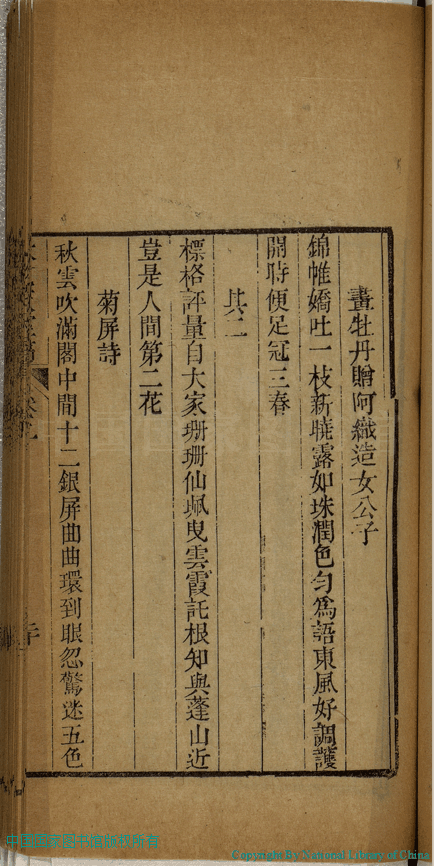 畫牡丹贈阿織造女公子
錦帷嬌吐一枝新曉露如珠潤色勻為語東風好調護
開時便足冠三春
其二
標格評量自大家珊珊仙珮曳雲霞託根知與蓬山近
豈是人間第二花
菊屏詩
秋雲吹滿閣中間十二銀屏曲曲環到眼忽驚迷五色
Copyright By National Library of China